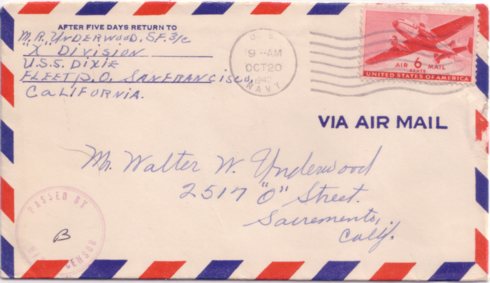 AFTER FIVE DAYS RETURN TO
M.R. UNDERWOOD, S.F. 3/c
"X" DIVISION
U.S.S. DIXIE
FLEET P.O. SAN FRANCISCO,
CALIFORNIA.
U. S.
9-AM
OCT 20
NAVY
AIR 6¢ MAIL
UNITED STATES OF AMERICA
VIA AIR MAIL
Mr. Walter W. Underwood
2517 "O" Street.
Sacramento,
Calif.
PASSED BY
CENSOR
B